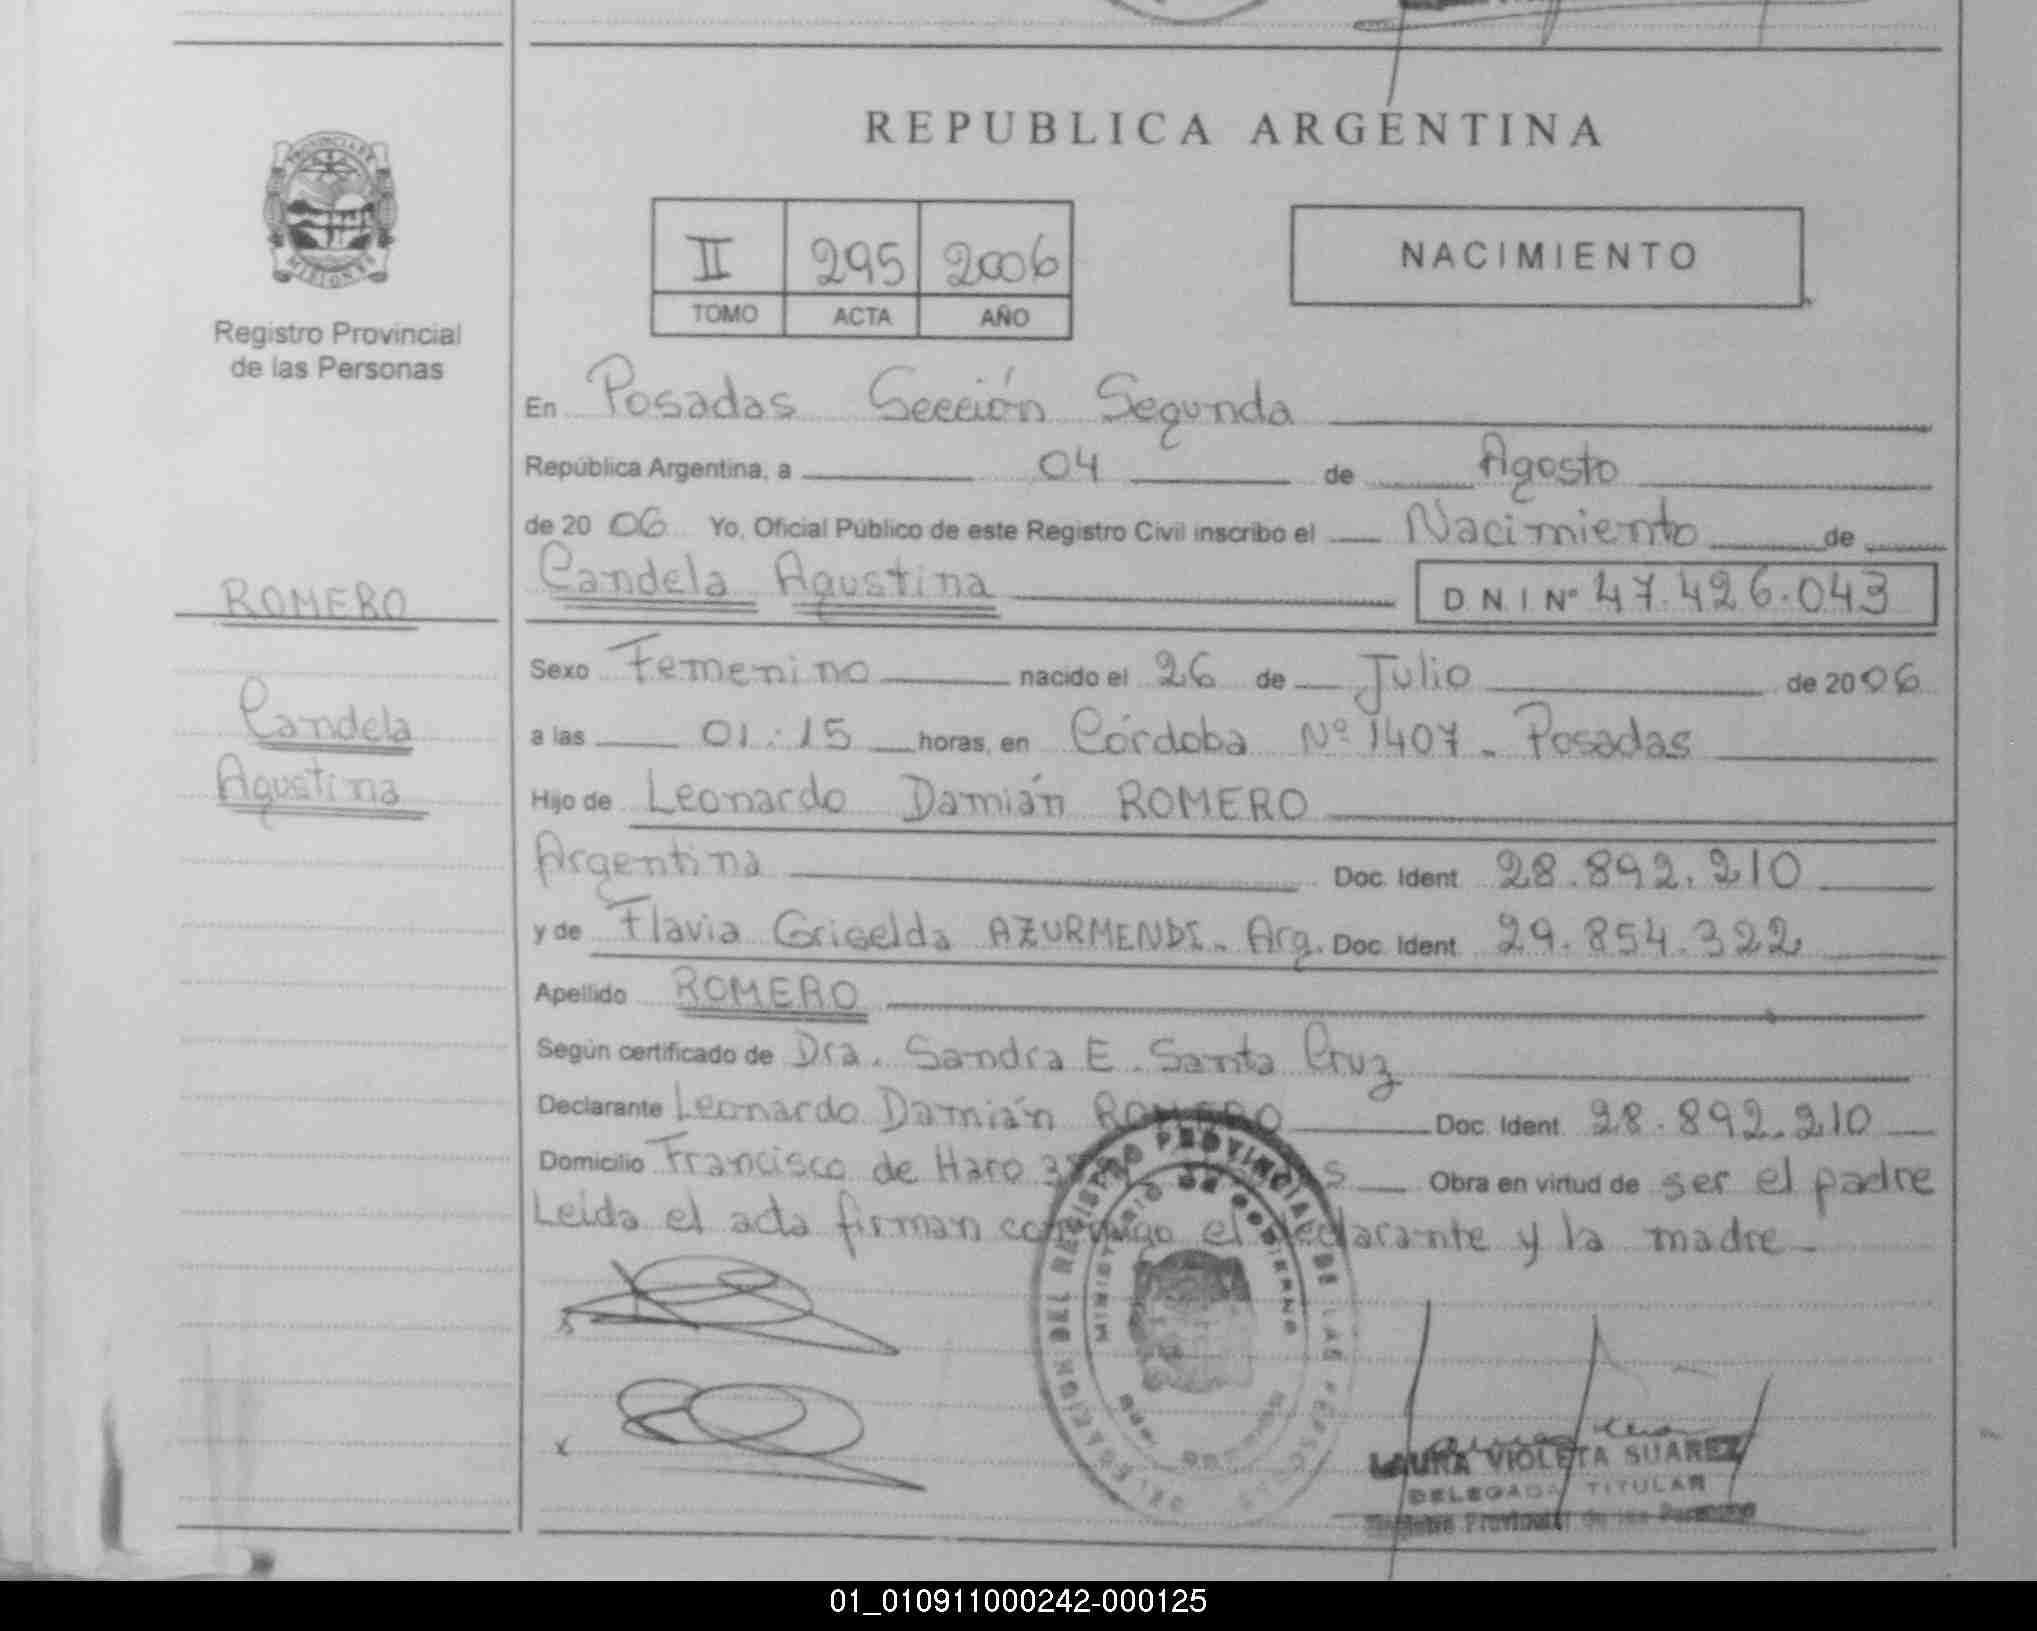 REPUBLICA ARGENTINA
PROVINCIA DE
MISIONES
Registro Provincial
de las Personas
II 295 2006
TOMO ACTA AÑO
NACIMIENTO
En Posadas Sección Segunda
República Argentina, a 04 de Agosto
de 2006 Yo, Oficial Público de este Registro Civil inscribo el Nacimiento de
Candela Agustina DNI Nº 47.426.043
ROMERO
Candela
Agustina
Sexo Femenino nacido el 26 de Julio de 2006
a las 01:15 horas, en Córdoba Nº 1407 - Posadas
Hijo de Leonardo Damián ROMERO
Argentina Doc. Ident. 28.892.210
y de Flavia Griselda AZURMENDI - Arg. Doc. Ident. 29.854.322
Apellido ROMERO
Según certificado de Dra. Sandra E. Santa Cruz
Declarante Leonardo Damián ROMERO Doc. Ident. 28.892.210
Domicilio Francisco de Haro Obra en virtud de ser el padre
Leída el acta firman conmigo el declarante y la madre -
DELEGACION DEL REGISTRO PROVINCIAL DE LAS PERSONAS
MINISTERIO DE GOBIERNO
LAURA VIOLETA SUAREZ
DELEGADA TITULAR
Registro Provincial de las Personas
01_010911000242-000125